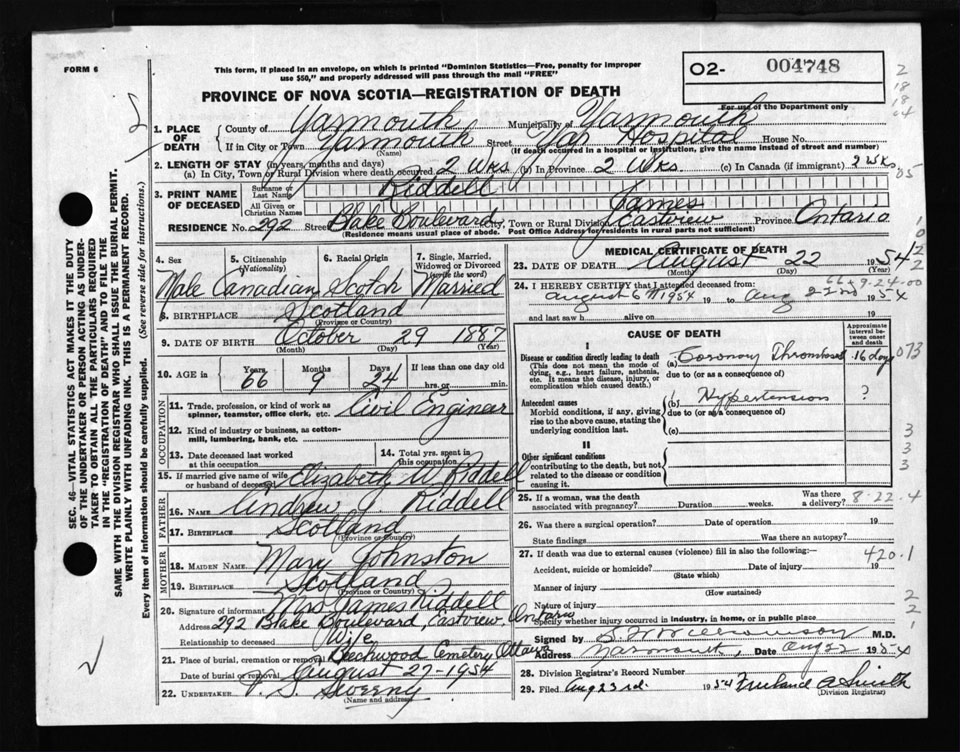 FORM 6
This form, if placed in an envelope, on which is printed "Dominion Statistics—Free, penalty for improper
use $50," and properly addressed will pass through the mail "FREE"
O2- 004748
For use of the Department only
PROVINCE OF NOVA SCOTIA—REGISTRATION OF DEATH
1. PLACE OF DEATH
County of Yarmouth Municipality of Yarmouth
If in City or Town Yarmouth Street Yar Hospital House No.
(Name) (If death occurred in a hospital or institution, give the name instead of street and number)
2. LENGTH OF STAY (in years, months and days)
(a) In City, Town or Rural Division where death occurred 2 Wks (b) In Province 2 Wks. (c) In Canada (if immigrant) 2 Wks
3. PRINT NAME OF DECEASED
Surname or Last Name Riddell
All Given or Christian Names James
RESIDENCE No. 292 Street Blake Boulevard City, Town or Rural Division Eastview Province Ontario
(Residence means usual place of abode. Post Office Address for residents in rural parts not sufficient)
4. Sex 5. Citizenship (Nationality) 6. Racial Origin 7. Single, Married, Widowed or Divorced (write the word)
Male Canadian Scotch Married
8. BIRTHPLACE Scotland
(Province or Country)
9. DATE OF BIRTH October 29 1887
(Month) (Day)
10. AGE in Years 66 Months 9 Days 24 If less than one day old hrs. or min.
OCCUPATION
11. Trade, profession, or kind of work as spinner, teamster, office clerk, etc. Civil Engineer
12. Kind of industry or business, as cotton-mill, lumbering, bank, etc.
13. Date deceased last worked at this occupation
14. Total yrs. spent in this occupation
15. If married give name of wife or husband of deceased Elizabeth W. Riddell
FATHER
16. NAME Andrew J. Riddell
17. BIRTHPLACE Scotland
(Province or Country)
MOTHER
18. MAIDEN NAME Mary Johnston
19. BIRTHPLACE Scotland
(Province or Country)
20. Signature of informant Mrs James Riddell
Address 292 Blake Boulevard, Eastview, Ontario
Relationship to deceased Wife
21. Place of burial, cremation or removal Beechwood Cemetery Ottawa
Date of burial or removal August 27-1954
22. UNDERTAKER V. S. Sweeny
(Name and address)
MEDICAL CERTIFICATE OF DEATH
23. DATE OF DEATH August 22 1954
(Month) (Day) (Year)
24. I HEREBY CERTIFY that I attended deceased from:
66 9-24-00
August 6th 1954 19 to Aug 22nd 1954
and last saw h alive on 19
CAUSE OF DEATH
Approximate interval between onset and death
I
Disease or condition directly leading to death
(This does not mean the mode of dying, e.g., heart failure, asthenia, etc. It means the disease, injury, or complication which caused death.)
(a) Coronary Thrombosis 16 days
due to (or as a consequence of)
Antecedent causes
Morbid conditions, if any, giving rise to the above cause, stating the underlying condition last.
(b) Hypertension ?
due to (or as a consequence of)
(c)
II
Other significant conditions
contributing to the death, but not related to the disease or condition causing it.
25. If a woman, was the death associated with pregnancy? Duration weeks. Was there a delivery? 8-22-4
26. Was there a surgical operation? Date of operation 19
State findings Was there an autopsy?
27. If death was due to external causes (violence) fill in also the following:—
420.1
Accident, suicide or homicide? Date of injury 19
(State which)
Manner of injury
(How sustained)
Nature of injury
Specify whether injury occurred in industry, in home, or in public place
Signed by S. W. Williamson M.D.
Address Yarmouth, Date Aug 22 1954
28. Division Registrar's Record Number
29. Filed Aug 23rd. 1954 Freeland A Smith
(Division Registrar)
SEC. 46—VITAL STATISTICS ACT MAKES IT THE DUTY
OF THE UNDERTAKER OR PERSON ACTING AS UNDER-
TAKER TO OBTAIN ALL THE PARTICULARS REQUIRED
IN THE "REGISTRATION OF DEATH" AND TO FILE THE
SAME WITH THE DIVISION REGISTRAR WHO SHALL ISSUE THE BURIAL PERMIT.
WRITE PLAINLY WITH UNFADING INK. THIS IS A PERMANENT RECORD.
Every item of information should be carefully supplied. (See reverse side for instructions.)